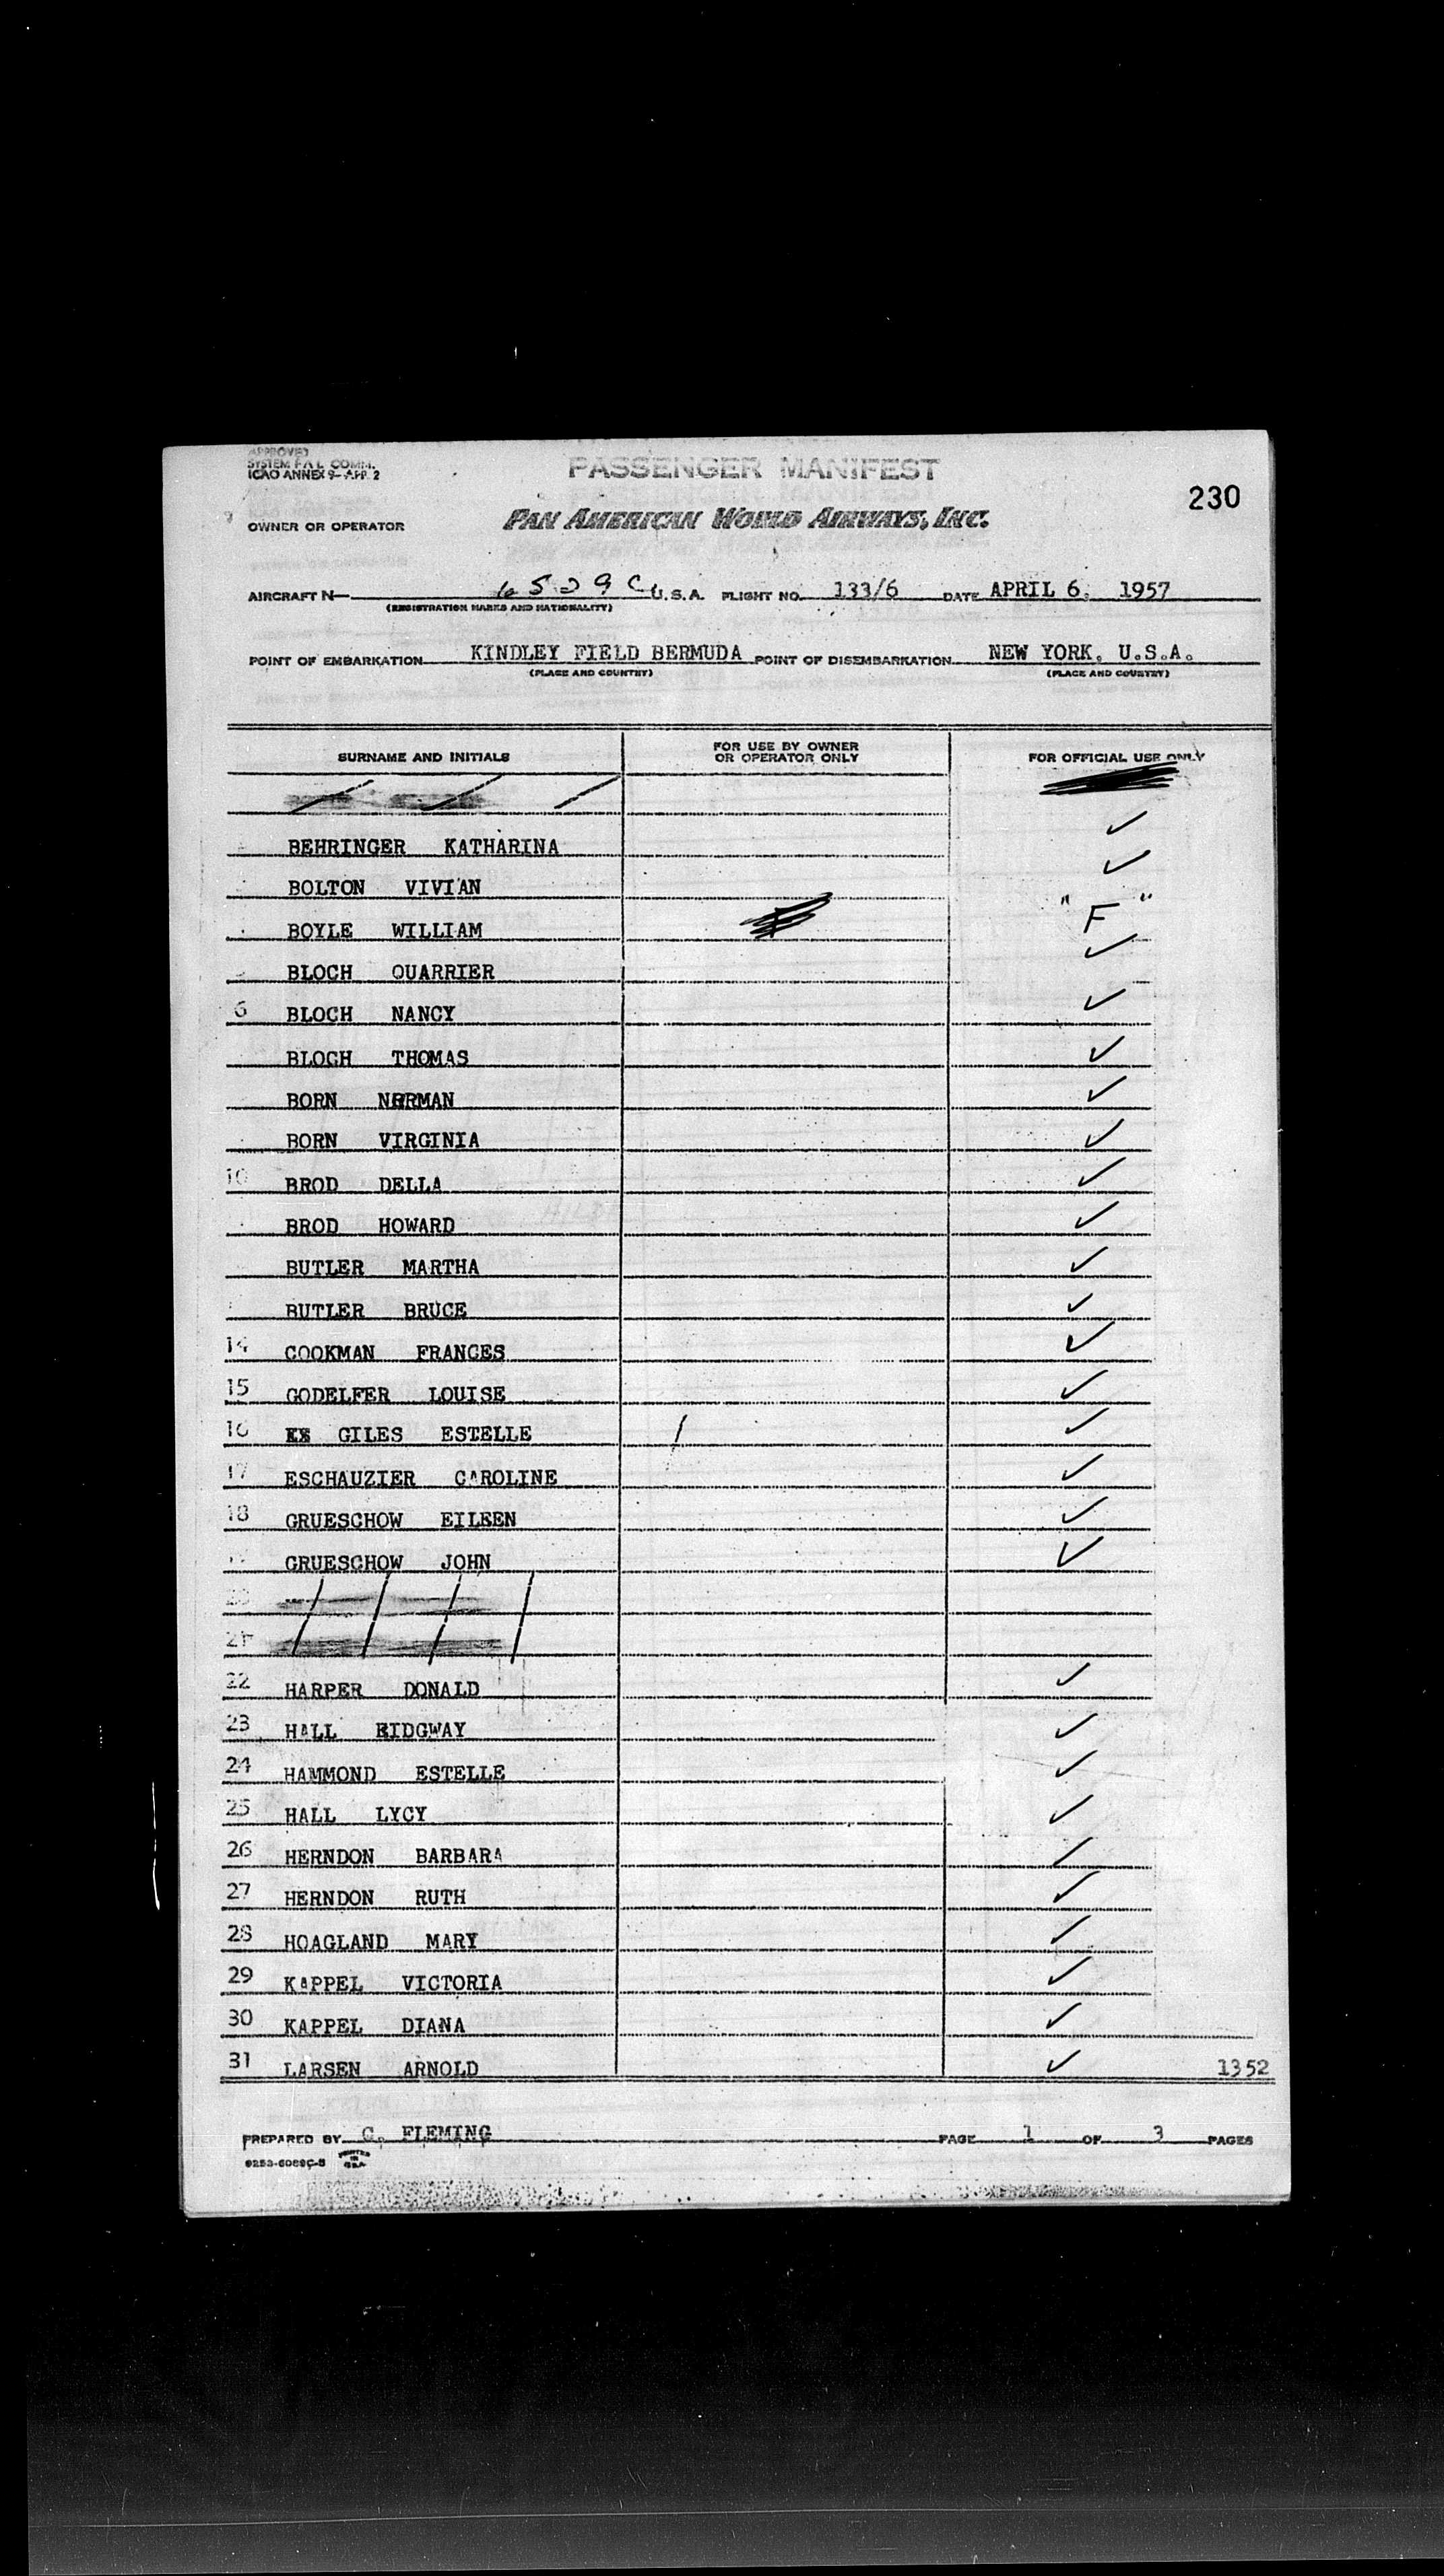 APPROVED
SYSTEM FAL COMM.
ICAO ANNEX 9-APP. 2
PASSENGER MANIFEST
230
OWNER OR OPERATOR PAN AMERICAN WORLD AIRWAYS, INC.
AIRCRAFT N— 6529C U.S.A. FLIGHT NO. 133/6 DATE APRIL 6, 1957
(REGISTRATION MARKS AND NATIONALITY)
POINT OF EMBARKATION KINDLEY FIELD BERMUDA POINT OF DISEMBARKATION NEW YORK, U.S.A.
(PLACE AND COUNTRY) (PLACE AND COUNTRY)
SURNAME AND INITIALS FOR USE BY OWNER OR OPERATOR ONLY FOR OFFICIAL USE ONLY
BEHRINGER KATHARINA ✓
BOLTON VIVIAN ✓
BOYLE WILLIAM "F"
BLOCH QUARRIER ✓
6 BLOCH NANCY ✓
BLOCH THOMAS ✓
BORN NORMAN ✓
BORN VIRGINIA ✓
10 BROD DELLA ✓
BROD HOWARD ✓
BUTLER MARTHA ✓
BUTLER BRUCE ✓
14 COOKMAN FRANCES ✓
15 GODELFER LOUISE ✓
16 GILES ESTELLE / ✓
17 ESCHAUZIER CAROLINE ✓
18 GRUESCHOW EILEEN ✓
GRUESCHOW JOHN ✓
20
21
22 HARPER DONALD ✓
23 HALL RIDGWAY ✓
24 HAMMOND ESTELLE ✓
25 HALL LYCY ✓
26 HERNDON BARBARA ✓
27 HERNDON RUTH ✓
28 HOAGLAND MARY ✓
29 KAPPEL VICTORIA ✓
30 KAPPEL DIANA ✓
31 LARSEN ARNOLD ✓ 1352
PREPARED BY C. FLEMING PAGE 1 OF 3 PAGES
PRINTED IN U.S.A.